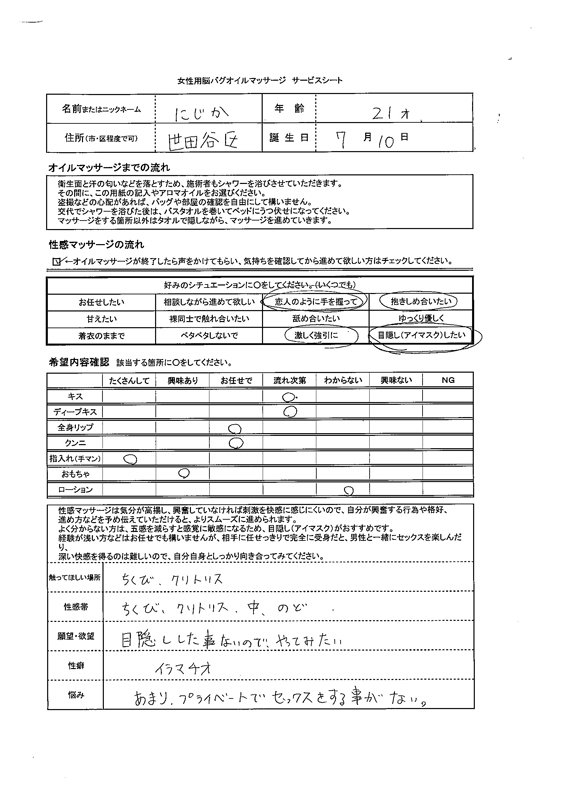 女性用脳バグオイルマッサージ サービスシート
名前またはニックネーム にじか 年 齢 21才
住所(市・区程度で可) 世田谷区 誕生日 7月10日
オイルマッサージまでの流れ
衛生面と汗の匂いなどを落とすため、施術者もシャワーを浴びさせていただきます。
その間に、この用紙の記入やアロマオイルをお選びください。
盗撮などの心配があれば、バッグや部屋の確認を自由にして構いません。
交代でシャワーを浴びた後は、バスタオルを巻いてベッドにうつ伏せになってください。
マッサージをする箇所以外はタオルで隠しながら、マッサージを進めていきます。
性感マッサージの流れ
☑←オイルマッサージが終了したら声をかけてもらい、気持ちを確認してから進めて欲しい方はチェックしてください。
好みのシチュエーションに〇をしてください。(いくつでも)
お任せしたい 相談しながら進めて欲しい 恋人のように手を握って 抱きしめ合いたい
甘えたい 裸同士で触れ合いたい 舐め合いたい ゆっくり優しく
着衣のままで ベタベタしないで 激しく強引に 目隠し(アイマスク)したい
希望内容確認 該当する箇所に〇をしてください。
たくさんして 興味あり お任せで 流れ次第 わからない 興味ない NG
キス 〇
ディープキス 〇
全身リップ 〇
クンニ 〇
指入れ(手マン) 〇
おもちゃ 〇
ローション 〇
性感マッサージは気分が高揚し、興奮していなければ刺激を快感に感じにくいので、自分が興奮する行為や格好、
進め方などを予め伝えていただけると、よりスムーズに進められます。
よく分からない方は、五感を減らすと感覚に敏感になるため、目隠し(アイマスク)がおすすめです。
経験が浅い方などはお任せでも構いませんが、相手に任せっきりで完全に受身だと、男性と一緒にセックスを楽しんだ
り、
深い快感を得るのは難しいので、自分自身としっかり向き合ってみてください。
触ってほしい場所 ちくび、クリトリス
性感帯 ちくび、クリトリス、中、のど
願望・欲望 目隠しした事ないので、やってみたい
性癖 イラマチオ
悩み あまり、プライベートでセックスをする事がない。